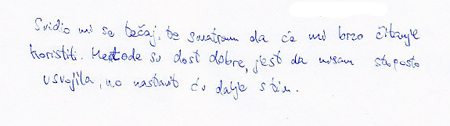 Svidio mi se tečaj, te smatram da će mi brzo čitanje
koristiti. Metode su dost dobre, jest da nisam stoposto
usvojila, no nastavit ću dalje s tim.